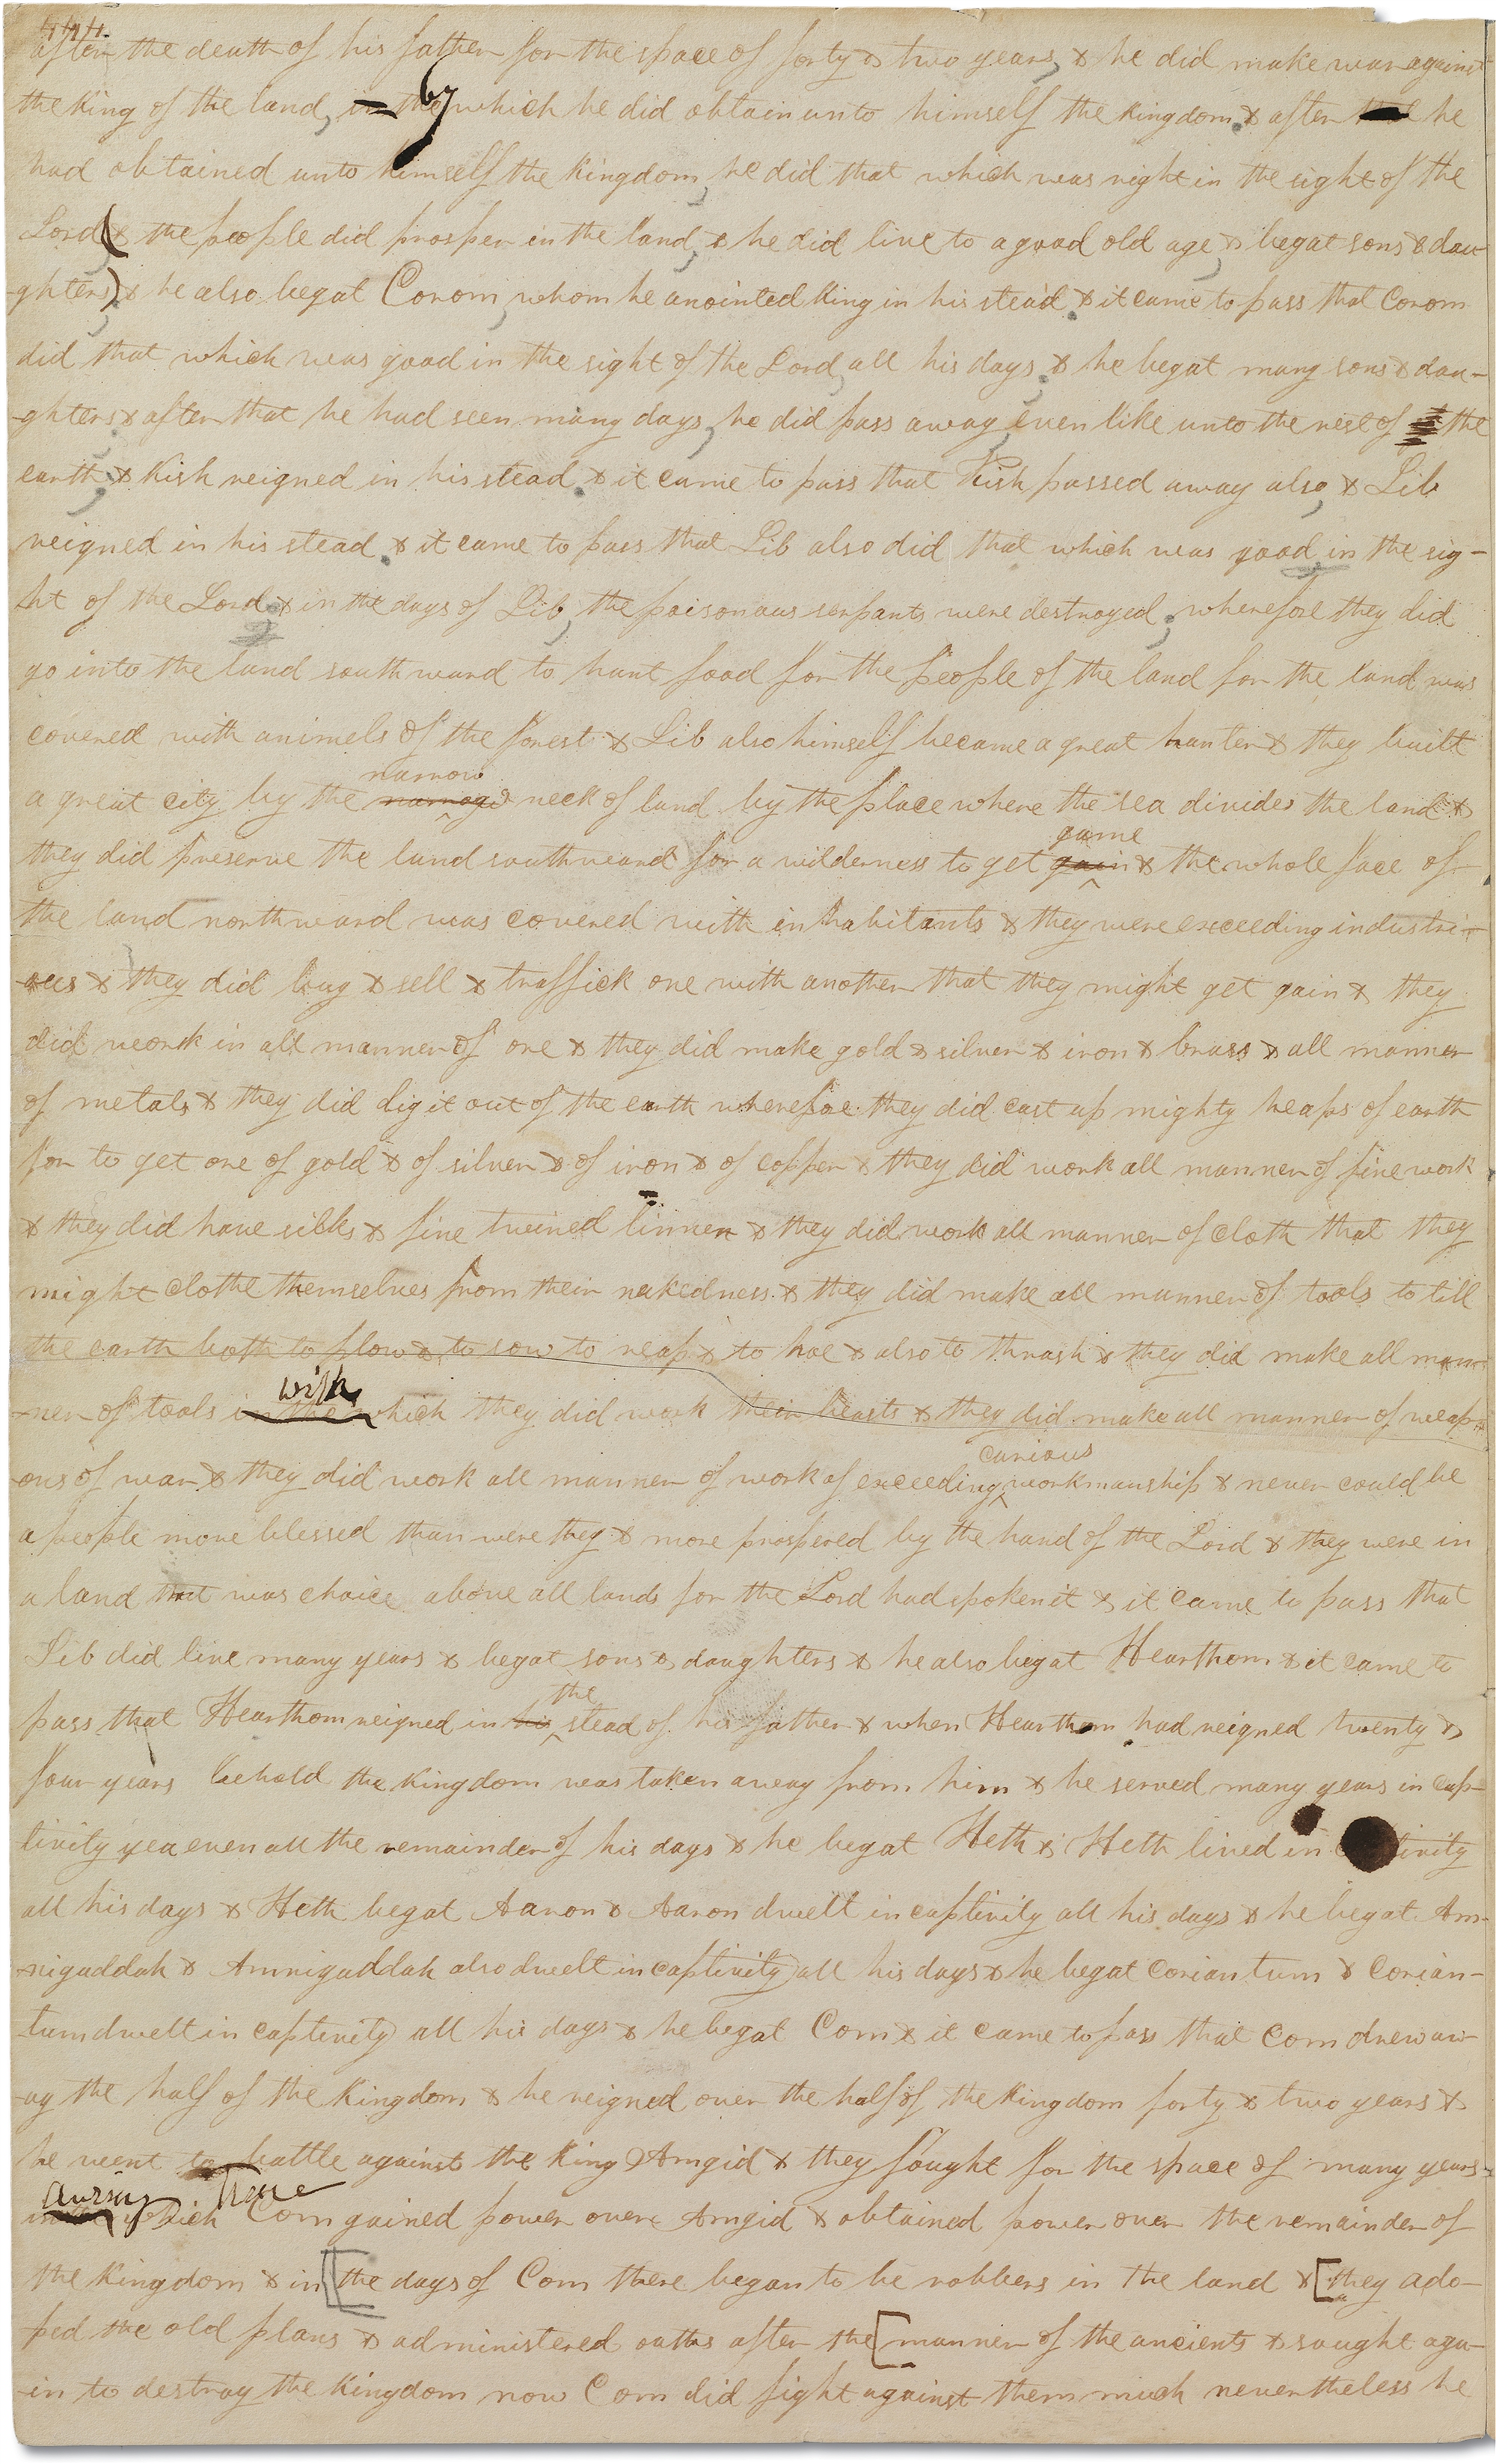 444.
after the death of his father for the space of forty & two years, & he did make war against
the King of the land, in the by which he did obtain unto himself the kingdom. & after that he
had obtained unto himself the Kingdom, he did that which was right in the sight of the
Lord (& the people did prosper in the land, & he did live to a good old age, & begat sons & dau
-ghters), & he also begat Corom, whom he anointed King in his stead. & it came to pass that Corom
did that which was good in the sight of the Lord, all his days. & he begat many sons & dau-
-ghters. & after that he had seen many days, he did pass away, even like unto the rest of the
earth; & Kish reigned in his stead. & it came to pass that Kish passed away also, & Lib
reigned in his stead. & it came to pass that Lib also did that which was good in the sig-
ht of the Lord. & in the days of Lib, the poisonous serpants were destroyed; wherefore they did
go into the land southward to hunt food for the people of the land for the land was
covered with animels of the forest & Lib also himself became a great hunter & they built
a great city by the narrow neck of land by the place where the sea divides the land &
they did preserve the land southward for a wilderness to get gain game & the whole face of
the land northward was covered with inhabitants & they were exceeding industri-
-ous & they did buy & sell & traffick one with another that they might get gain & they
did work in all manner of ore & they did make gold & silver & iron & brass & all manner
of metals & they did dig it out of the earth wherefore they did cast up mighty heaps of earth
for to get ore of gold & of silver & of iron & of copper & they did work all manner of fine work
& they did have silks & fine twined linnen & they did work all manner of cloth that they
might clothe themselves from their nakedness & they did make all manner of tools to till
the earth both to plow & to sow to reap & to hoe & also to thrash & they did make all man
-ner of tools in the with which they did work their beasts & they did make all manner of weap-
ons of war & they did work all manner of work of exceeding curious workmanship & never could be
a people more blessed than were they & more prospered by the hand of the Lord & they were in
a land that was choice above all lands for the Lord had spoken it & it came to pass that
Lib did live many years & begat sons & daughters & he also begat Hearthom & it came to
pass that Hearthom reigned in his the stead of his father & when Hearthom had reigned twenty &
four years behold the Kingdom was taken away from him & he served many years in cap-
tivity yea even all the remainder of his days & he begat Heth & Heth lived in captivity
all his days & Heth begat Aaron & Aaron dwelt in captivity all his days & he begat Am-
-nigaddah & Amnigaddah also dwelt in captivity all his days & he begat Coriantum & Corian-
tum dwelt in captivity all his days & he begat Com & it came to pass that Com drew aw-
-ay the half of the Kingdom & he reigned over the half of the Kingdom forty & two years &
he went to battle against the King Amgid & they fought for the space of many years-
in the during which time Com gained power over Amgid & obtained power over the remainder of
the Kingdom & in [the days of Com there began to be robbers in the land & [they ado-
ped the old plans & administered oaths after the [manner of the ancients & sought aga-
-in to destroy the Kingdom now Com did fight against them much nevertheless he